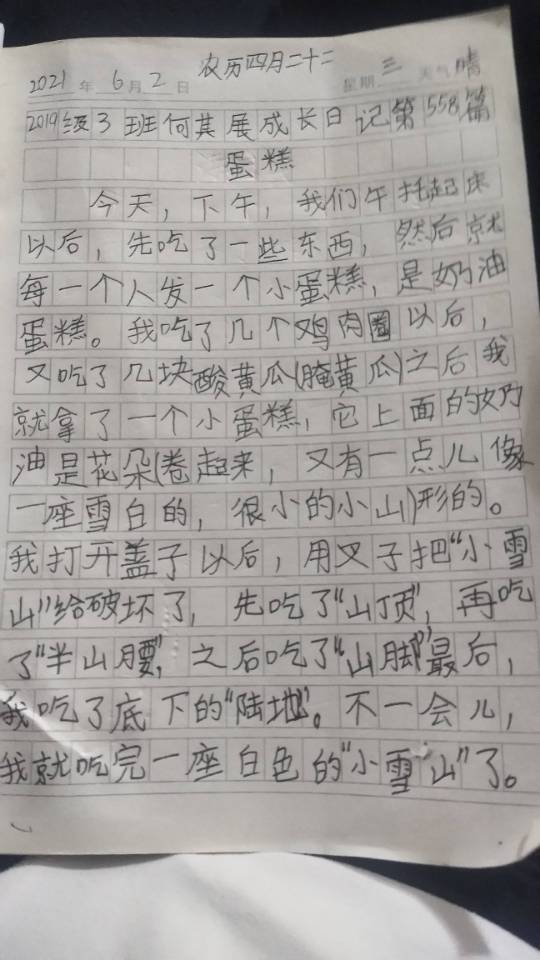 农历四月二十二
2021年6月2日 星期三 天气晴
2019级3班何其展成长日记第558篇
蛋糕
今天，下午，我们午托起床
以后，先吃了一些东西，然后就
每一个人发一个小蛋糕，是奶油
蛋糕。我吃了几个鸡肉圈以后，
又吃了几块酸黄瓜(腌黄瓜)之后我
就拿了一个小蛋糕，它上面的奶
油是花朵(卷起来，又有一点儿像
一座雪白的，很小的小山)形的。
我打开盖子以后，用叉子把“小雪
山”给破坏了，先吃了“山顶”，再吃
了“半山腰”，之后吃了“山脚”最后，
我吃了底下的“陆地”。不一会儿，
我就吃完一座白色的“小雪山”了。